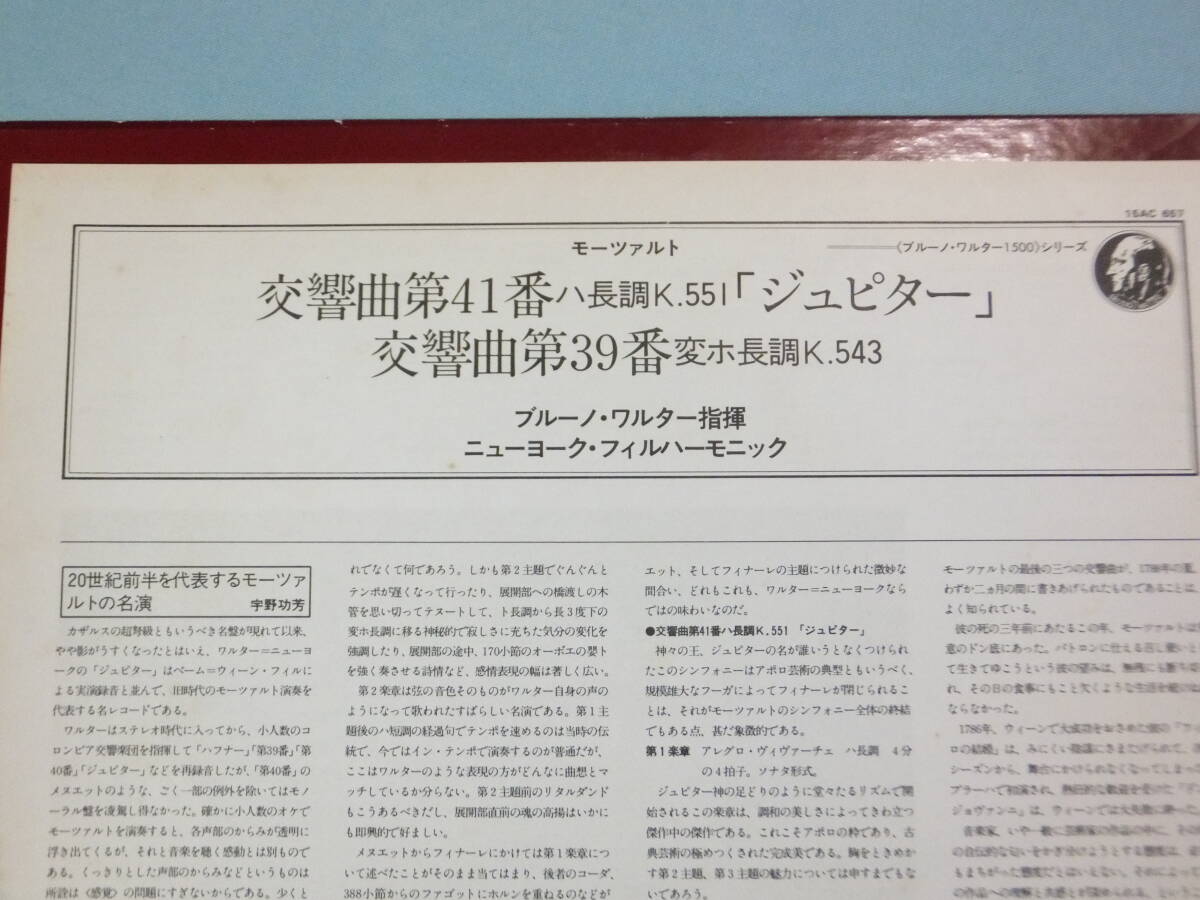 15AC 657
モーツァルト
《ブルーノ・ワルター1500》シリーズ
交響曲第41番ハ長調K.551「ジュピター」
交響曲第39番変ホ長調K.543
ブルーノ・ワルター指揮
ニューヨーク・フィルハーモニック
20世紀前半を代表するモーツァ
ルトの名演 宇野功芳
カザルスの超弩級ともいうべき名盤が現れて以来、
やや影がうすくなったとはいえ、ワルター＝ニューヨ
ークの「ジュピター」はベーム＝ウィーン・フィルに
よる実演録音と並んで、旧時代のモーツァルト演奏を
代表する名レコードである。
ワルターはステレオ時代に入ってから、小人数のコ
ロンビア交響楽団を指揮して「ハフナー」「第39番」「第
40番」「ジュピター」などを再録音したが、「第40番」の
メヌエットのような、ごく一部の例外を除いてはモノ
ーラル盤を凌駕し得なかった。確かに小人数のオケで
モーツァルトを演奏すると、各声部のからみが透明に
浮き出てくるが、それと音楽を聴く感動とは別もので
ある。くっきりとした声部のからみなどというものは
所詮は〈感覚〉の問題にすぎないからである。少くと
れでなくて何であろう。しかも第2主題でぐんぐんと
テンポが遅くなって行ったり、展開部への橋渡しの木
管を思い切ってテヌートして、ト長調から長3度下の
変ホ長調に移る神秘的で寂しさに充ちた気分の変化を
強調したり、展開部の途中、170小節のオーボエの嬰ト
を強く奏させる詩情など、感情表現の幅は著しく広い。
第2楽章は弦の音色そのものがワルター自身の声の
ようになって歌われたすばらしい名演である。第1主
題後のハ短調の経過句でテンポを速めるのは当時の伝
統で、今ではイン・テンポで演奏するのが普通だが、
ここはワルターのような表現の方がどんなに曲想とマ
ッチしているか分らない。第2主題前のリタルダンド
もこうあるべきだし、展開部直前の魂の高揚はいかに
も即興的で好ましい。
メヌエットからフィナーレにかけては第1楽章につ
いて述べたことがそのまま当てはまり、後者のコーダ、
388小節からのファゴットにホルンを重ねるのなどが
エット、そしてフィナーレの主題につけられた微妙な
間合い、どれもこれも、ワルター＝ニューヨークなら
ではの味わいなのだ。
●交響曲第41番ハ長調K.551 「ジュピター」
神々の王、ジュピターの名が誰いうとなくつけられ
たこのシンフォニーはアポロ芸術の典型ともいうべく、
規模雄大なフーガによってフィナーレが閉じられるこ
とは、それがモーツァルトのシンフォニー全体の終結
でもある点、甚だ象徴的である。
第1楽章 アレグロ・ヴィヴァーチェ ハ長調 4分
の4拍子。ソナタ形式。
ジュピター神の足どりのように堂々たるリズムで開
始されるこの楽章は、調和の美しさによってきわ立つ
傑作中の傑作である。これこそアポロの粋であり、古
典芸術の極めつくされた完成美である。胸をときめか
す第2主題、第3主題の魅力については申すまでもな
いであろう。
モーツァルトの最後の三つの交響曲が、1788年の夏、
わずか二ヵ月の間に書きあげられたものであることは、
よく知られている。
彼の死の三年前にあたるこの年、モーツァルトは
意のドン底にあった。パトロンに仕える
て生きてゆこうという彼の望みは、
れ、その日の食事にもこと欠くような生活を
ならなかった。
1786年、ウィーンで大成功をおさめた彼の
ロの結婚」は、みにくい陰謀にさまたげられて、
シーズンから、舞台にかけられなくなってしまっ
プラーハで初演され、熱狂的な歓呼を受けた「
ジョヴァンニ」は、ウィーンでは
音楽家、いや一般に芸術家の作品の中に、
の自伝的な匂いをかぎ分けようとする態度は、
もまちがった態度だとはいえない。それによって
の作品への理解と共感とが深められる、という